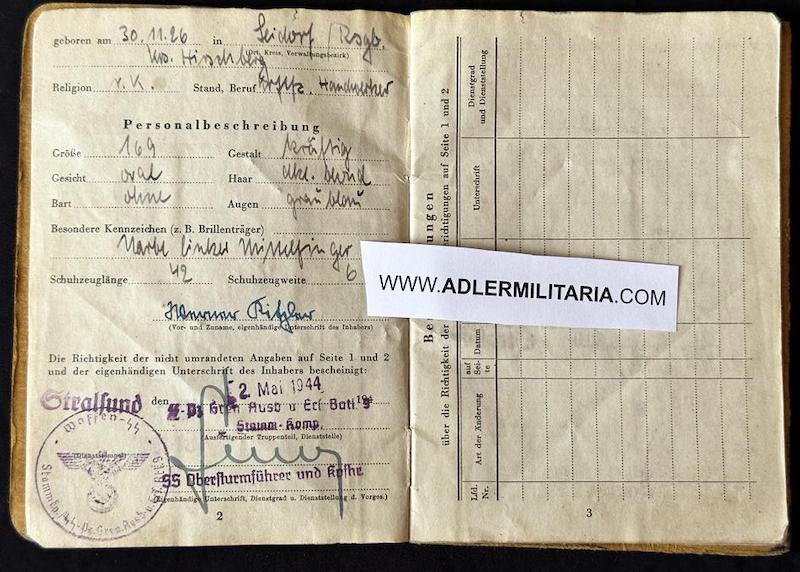 geboren am 30.11.26 in Seidorf /Rsgb.
(Ort, Kreis, Verwaltungsbezirk)
Krs. Hirschberg
Religion r.K. Stand, Beruf Handwerker
Personalbeschreibung
Größe 169 Gestalt kräftig
Gesicht oval Haar dkl. blond
Bart ohne Augen graublau
Besondere Kennzeichen (z. B. Brillenträger)
Narbe linker Mittelfinger
Schuhzeuglänge 42 Schuhzeugweite 6
Werner
(Vor- und Zuname, eigenhändige Unterschrift des Inhabers)
Die Richtigkeit der nicht umrandeten Angaben auf Seite 1 und 2
und der eigenhändigen Unterschrift des Inhabers bescheinigt:
Stralsund den 2. Mai 1944 194
SS-Pz Gren Ausb u Ers Batl. 9
Stamm-Komp.
(Ausfertigender Truppenteil, Dienststelle)
Waffen-SS
(Dienststempel)
SS Obersturmführer und Kpfhr
(Eigenhändige Unterschrift, Dienstgrad u. Dienststellung d. Vorges.)
2
Dienstgrad
und Dienststellung
Unterschrift
Datum
auf
Sei-
te
Art der Änderung
Lfd.
Nr.
über die Richtigkeit der
richtigungen auf Seite 1 und 2
WWW.ADLERMILITARIA.COM
3